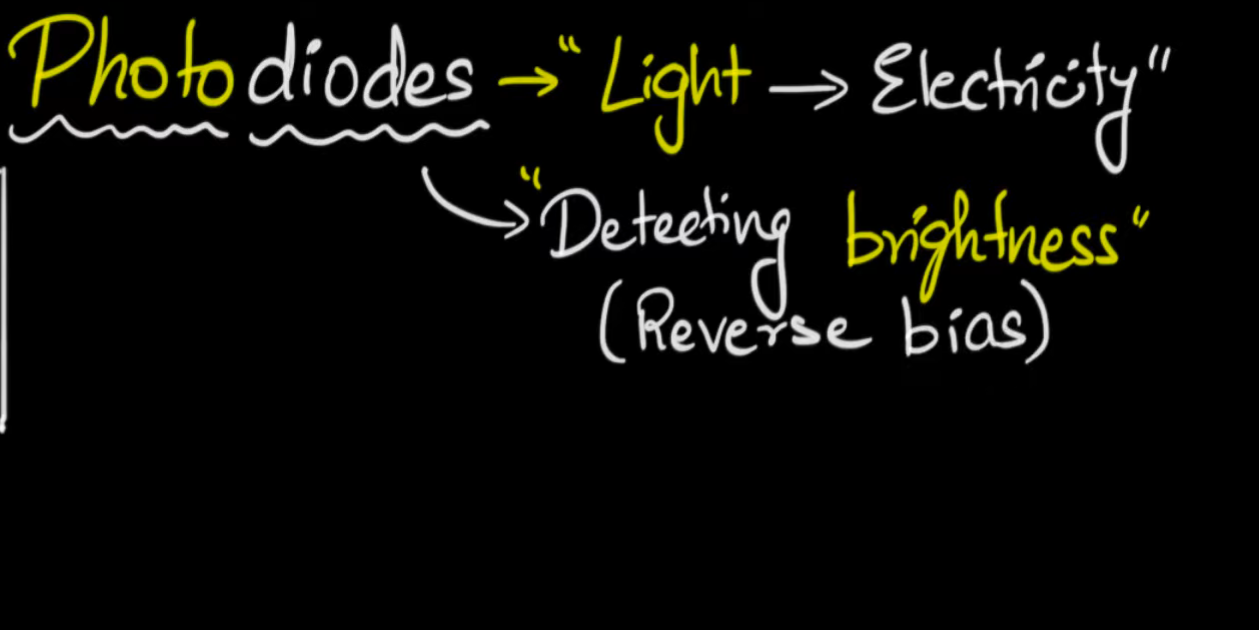 Photodiodes → “Light → Electricity”
“Detecting brightness”
(Reverse bias)